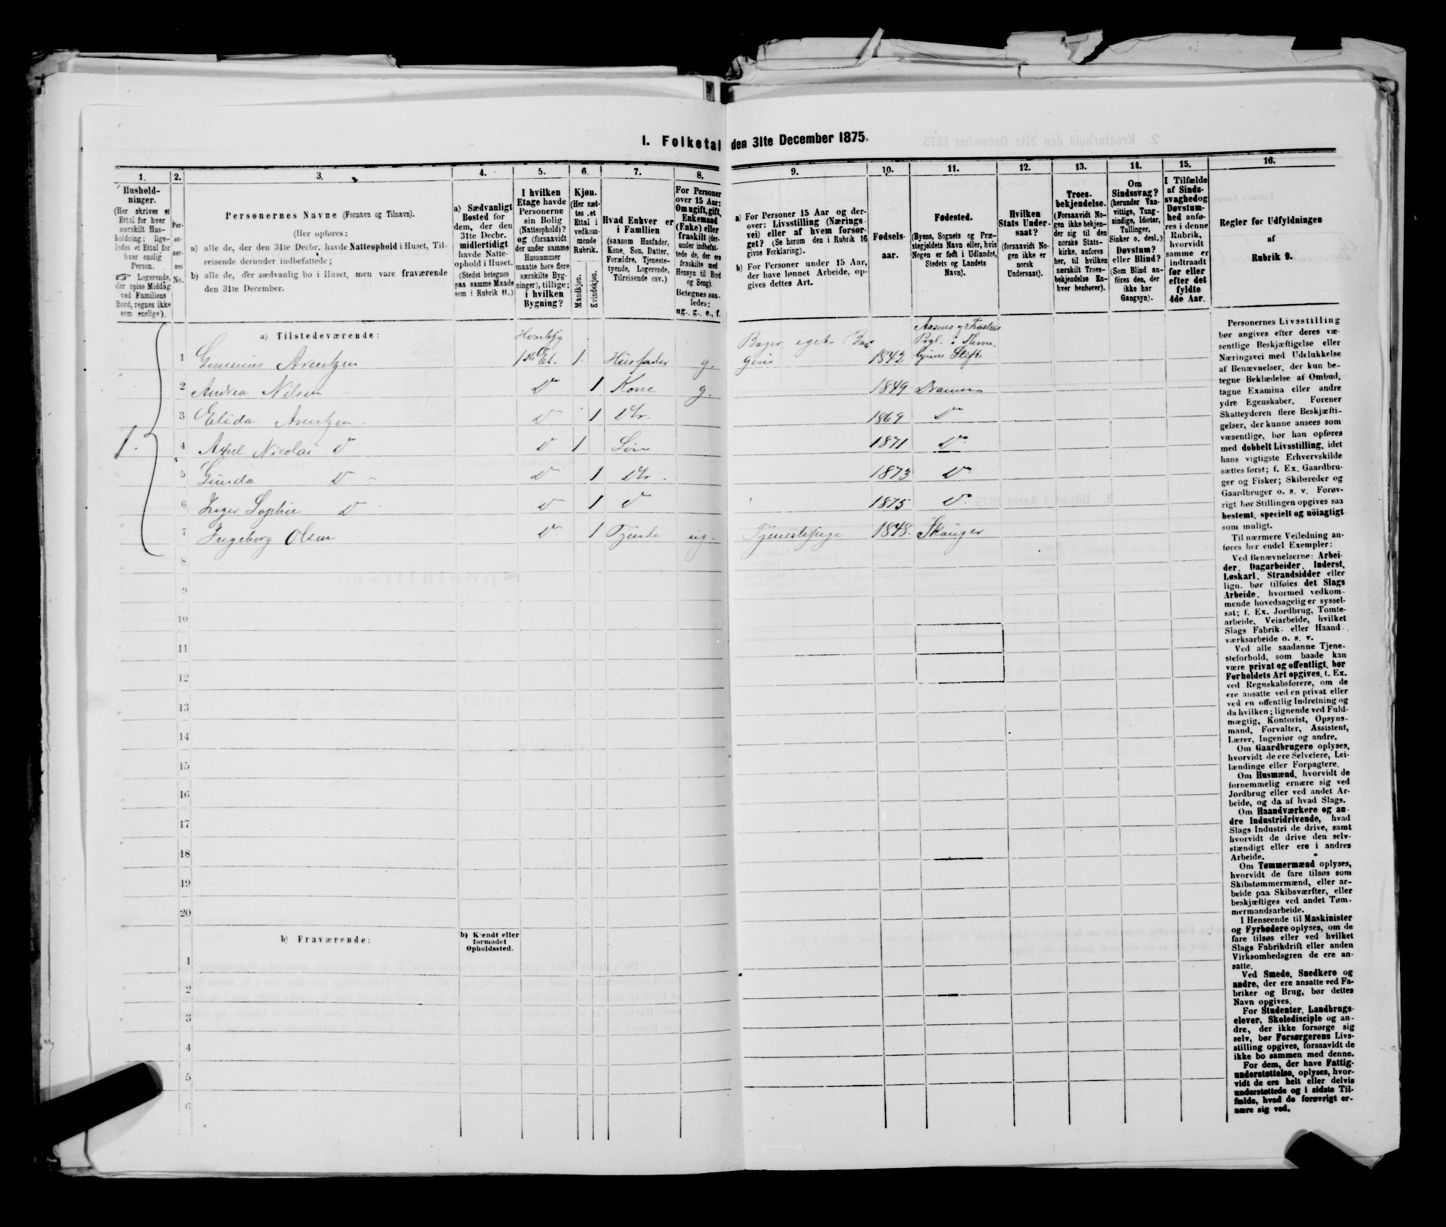 I. Folketal den 31te December 1875.
1. 2. 3. 4. 5. 6. 7. 8. 9. 10. 11. 12. 13. 14. 15. 16.
Hushold-
ninger.
(Her skrives et
Ettal for hver
særskilt Hus-
holdning; lige-
ledes et Ettal for
hver enslig
Person.
Logerende,
der spise Middag
ved Familiens
Bord, regnes ikke
som enslige).
Per-
so-
ner-
nes
No.
Personernes Navne (Fornavn og Tilnavn).
(Her opføres:
a) alle de, der den 31te Decbr. havde Natteophold i Huset, Til-
reisende derunder indbefattede;
b) alle de, der sædvanlig bo i Huset, men vare fraværende
den 31te December.
a) Sædvanligt
Bosted for
dem, der den
31te Decbr.
midlertidigt
havde Natte-
ophold i Huset.
(Stedet betegnes
paa samme Maade
som i Rubrik 11.)
I hvilken
Etage havde
Personerne
sin Bolig
(Natteophold)?
og (forsaavidt
der under samme
Husnummer
maatte høre flere
særskilte Byg-
ninger), tillige:
i hvilken
Bygning?
Kjøn.
(Her sæt-
tes et
Ettal i
vedkom-
mende
Rubrik.
Mandkjøn.
Kvindekjøn.
Hvad Enhver er
i Familien
(saasom Husfader,
Kone, Søn, Datter,
Forældre, Tjeneste-
tyende, Logerende,
Tilreisende osv.)
For Personer
over 15 Aar:
Om ugift, gift,
Enkemand
(Enke) eller
fraskilt (der-
under indbefat-
tede de, der ere
fraskilte med
Hensyn til Bord
og Seng).
Betegnes saa-
ledes:
ug., g., e., f.
a) For Personer 15 Aar og der-
over: Livsstilling (Nærings-
vei) eller af hvem forsør-
get? (Se herom den i Rubrik 16
givne Forklaring).
b) For Personer under 15 Aar,
der have lønnet Arbeide, op-
gives dettes Art.
Fødsels-
aar.
Fødested.
(Byens, Sognets og Præ-
stegjeldets Navn eller, hvis
Nogen er født i Udlandet,
Stedets og Landets
Navn).
Hvilken
Stats Under-
saat?
(forsaavidt No-
gen ikke er
norsk
Undersaat).
Troes-
bekjendelse.
(Forsaavidt No-
gen ikke bekjen-
der sig til den
norske Stats-
kirke, anføres
her, til hvilken
særskilt Troes-
bekjendelse En-
hver henhører).
Om
Sindssvag?
(herunder Van-
vittige, Tung-
sindige, Idioter,
Tullinger,
Sinker o. desl.)
Døvstum?
eller Blind?
(Som Blind an-
føres den, der
ikke har
Gangsyn).
I Tilfælde
af Sinds-
svaghed og
Døvstum-
hed anfø-
res i denne
Rubrik,
hvorvidt
samme er
indtraadt
før eller
efter det
fyldte
4de Aar.
Regler for Udfyldningen
af
Rubrik 9.
a) Tilstedeværende:
1. 1 Arentzen 1 Husfader g. 1842
2 Andrea Nilsen Do 1 Kone g. 1849 Drammen
3 Elida Arentzen Do 1 Dtr. 1869 Do
4 Axel Nicolai Do Do 1 Søn 1871 Do
5 Do Do 1 Dtr. 1873 Do
6 Inger Sophie Do Do 1 Do 1875 Do
7 Ingeborg Olsen Do 1 Tjende ug. Tjenestepige 1848. Skauger
8
9
10
11
12
13
14
15
16
17
18
19
20
b) Fraværende:
b) Kjendt eller
formodet
Opholdssted.
1
2
3
4
5
6
Personernes Livsstilling
bør angives efter deres væ-
sentlige Beskjæftigelse eller
Næringsvei med Udelukkelse
af Benævnelser, der kun be-
tegne Beklædelse af Ombud,
tagne Examina eller andre
ydre Egenskaber. Forener
Skatteyderen flere Beskjæfti-
gelser, der kunne ansees som
væsentlige, bør han opføres
med dobbelt Livsstilling, idet
hans vigtigste Erhvervskilde
sættes først; f. Ex. Gaardbru-
ger og Fisker; Skibsreder og
Gaardbruger o. s. v. Forøv-
rigt bør Stillingen opgives saa
bestemt, specielt og nöiagtigt
som muligt.
Til nærmere Veiledning an-
føres her endel Exempler:
Ved Benævnelserne: Arbei-
der, Dagarbeider, Inderst,
Løskarl, Strandsidder eller
lign. bør tilføies det Slags
Arbeide, hvormed vedkom-
mende hovedsagelig er syssel-
sat; f. Ex. Jordbrug, Tomte-
arbeide, Veiarbeide, hvilket
Slags Fabrik- eller Haand-
værksarbeide o. s. v.
Ved alle saadanne Tjene-
steforhold, som baade kan
være privat og offentligt, bør
Forholdets Art opgives, t. Ex.
ved Regnskabsførere, om de
ere ansatte ved en privat eller
ved en offentlig Indretning og
da hvilken; lignende ved Fuld-
mægtig, Kontorist, Opsyns-
mand, Forvalter, Assistent,
Lærer, Ingeniør og andre.
Om Gaardbrugere oplyses,
hvorvidt de ere Selveiere, Lei-
lændinge eller Forpagtere.
Om Husmænd, hvorvidt de
fornemmelig ernære sig ved
Jordbrug eller ved andet Ar-
beide, og da af hvad Slags.
Om Haandværkere og an-
dre Industridrivende, hvad
Slags Industri de drive, samt
hvorvidt de drive den selv-
stændigt eller ere i andres
Arbeide.
Om Tømmermænd oplyses,
hvorvidt de fare tilsøs som
Skibstømmermænd, eller ar-
beide paa Skibsværfter, eller
beskjæftiges ved andet Tøm-
mermandsarbeide.
I Henseende til Maskinister
og Fyrbødere oplyses, om de
fare tilsøs eller ved hvilket
Slags Fabrikdrift eller anden
Virksomhedsgren de ere an-
satte.
Ved Smede, Snedkere og
andre, der ere ansatte ved Fa-
briker og Brug, bør dettes
Navn opgives.
For Studenter, Landbrugs-
elever, Skoledisciple og an-
dre, der ikke forsørge sig
selv, bør Forsørgerens Livs-
stilling opgives, forsaavidt de
ikke bo sammen med denne.
For dem, der have Fattig-
understøttelse, oplyses, hvor-
vidt de ere helt eller delvis
understøttede og i sidste Til-
fælde, hvad de forøvrigt er-
nære sig ved.